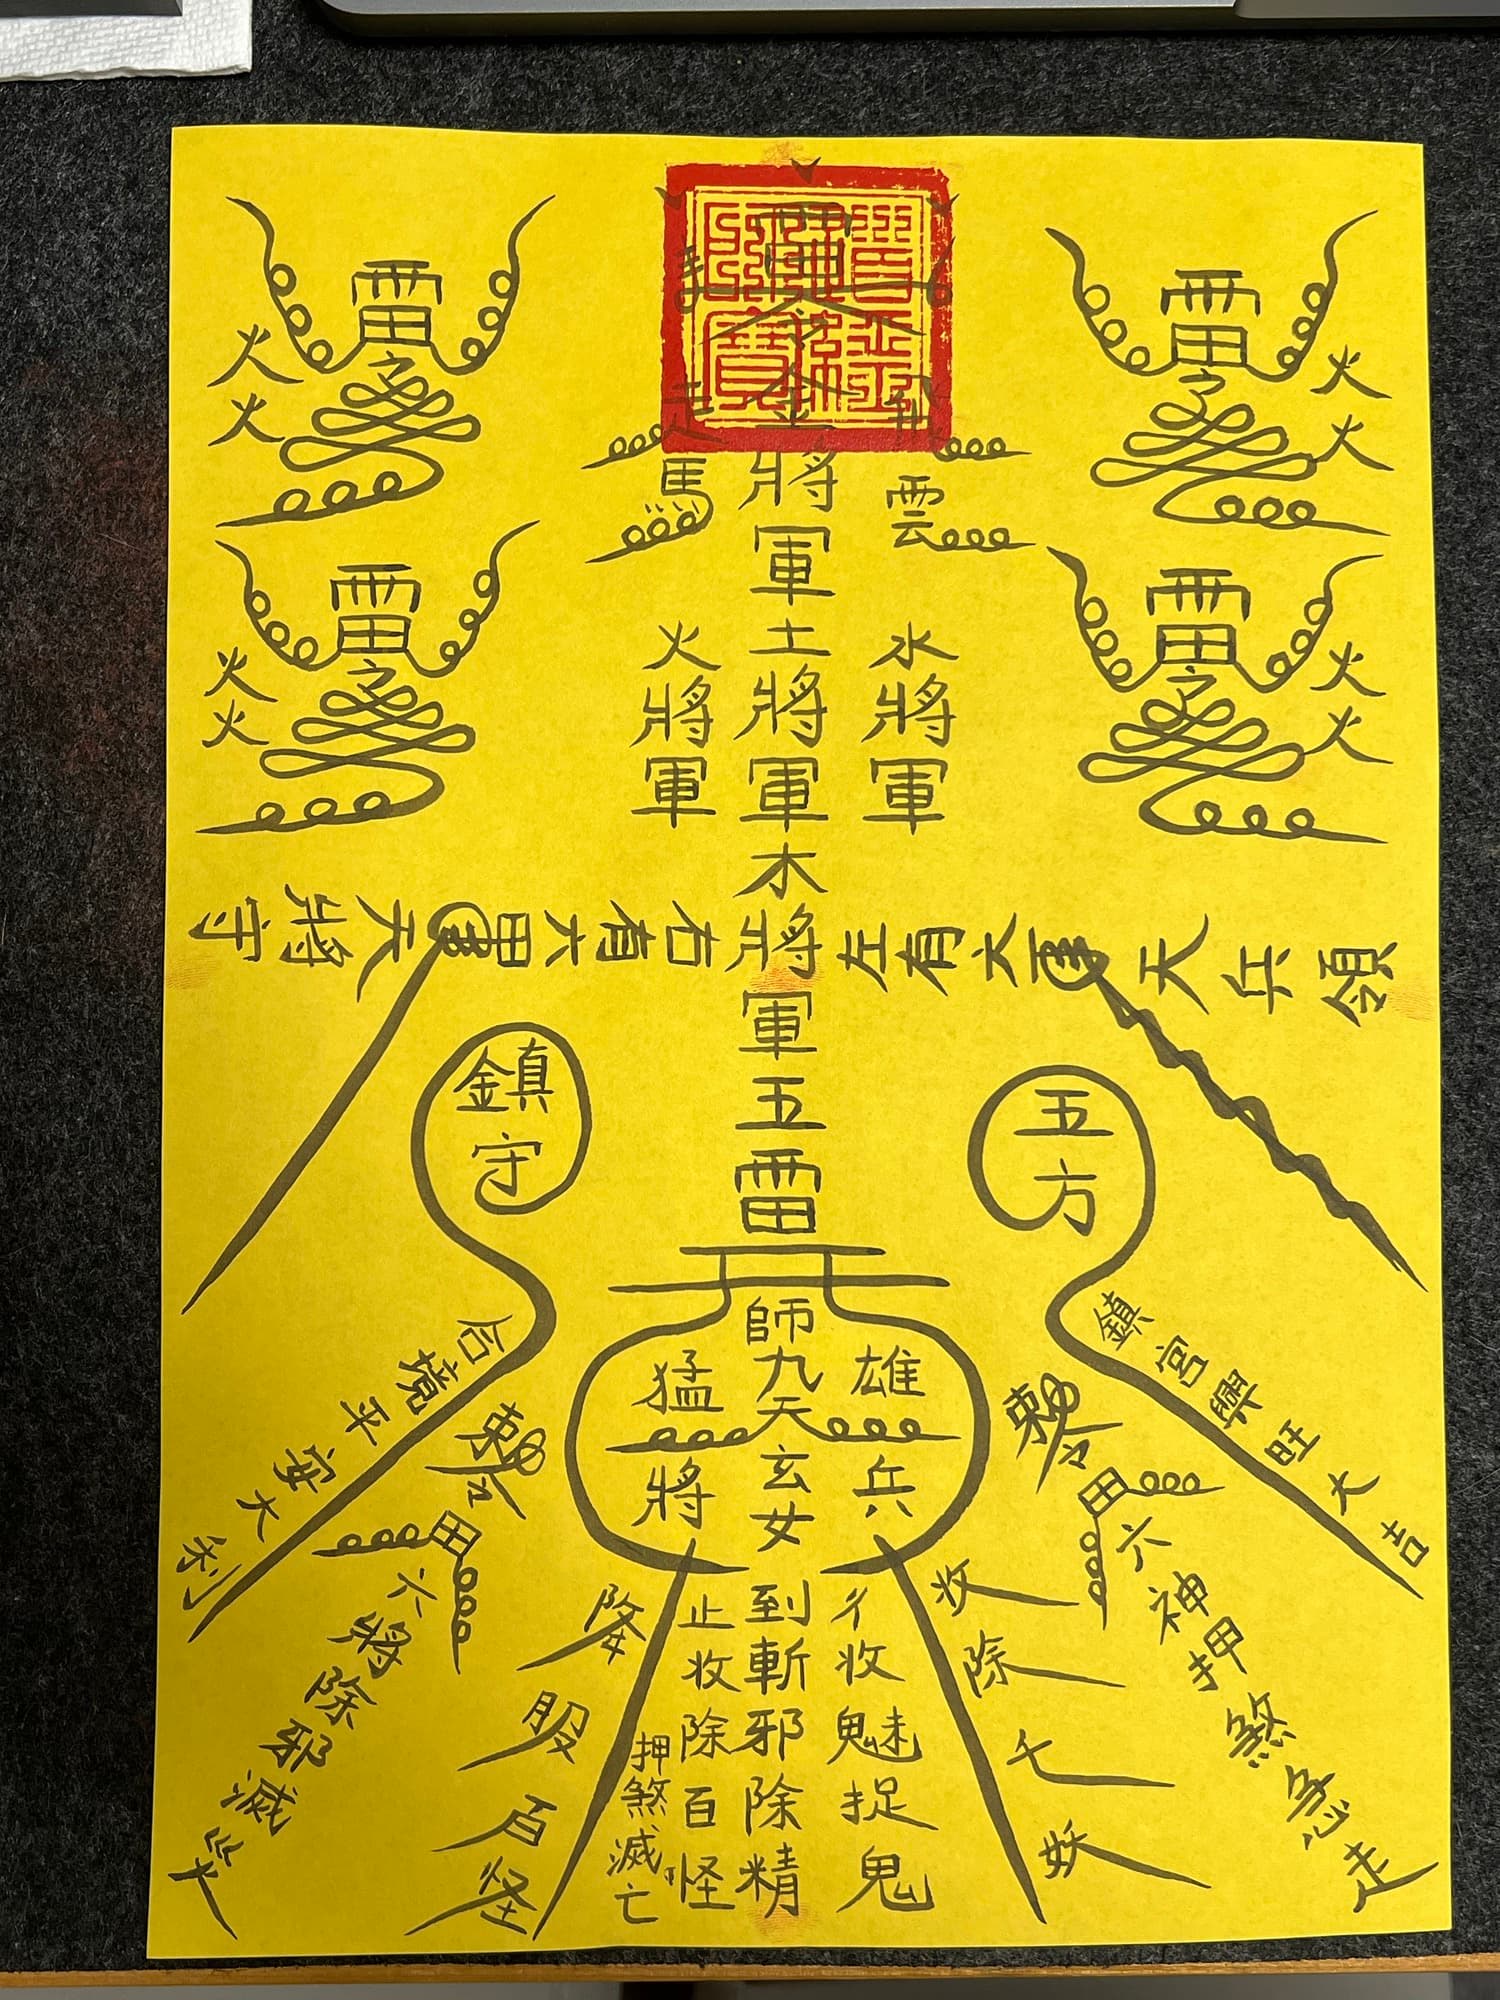 道經師寶
雷
火火
雷
火火
雷
火火
雷
火火
雲
走馬
將軍土將軍木將軍五雷
水將軍
火將軍
領兵天
六有左
右有六
天將守
五方
鎮守
鎮宮興旺大吉
合境平安大利
師九天玄女
雄兵
猛將
敕令
六神押煞急走
敕令
六將除邪滅災
收除七妖
降服百怪
到斬邪除精
收魅捉鬼
止收除百怪
押煞滅亡